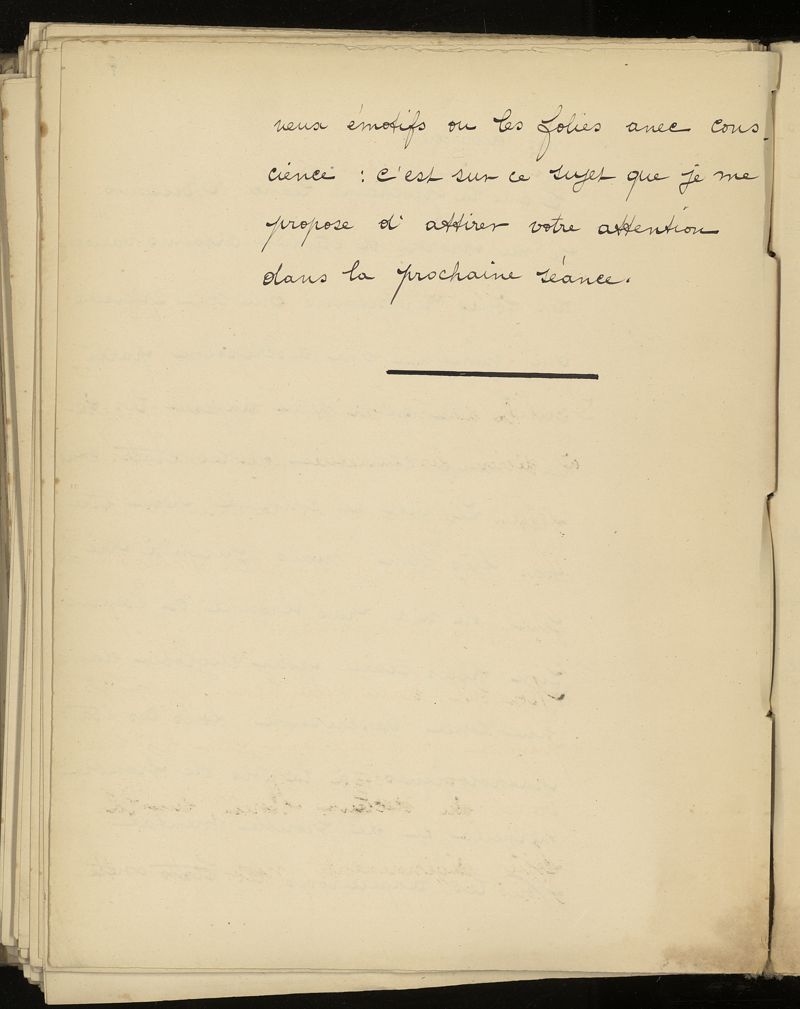 veux émotifs ou les folies avec cons-
cience : c'est sur ce sujet que je me
propose d'attirer votre attention
dans la prochaine séance.